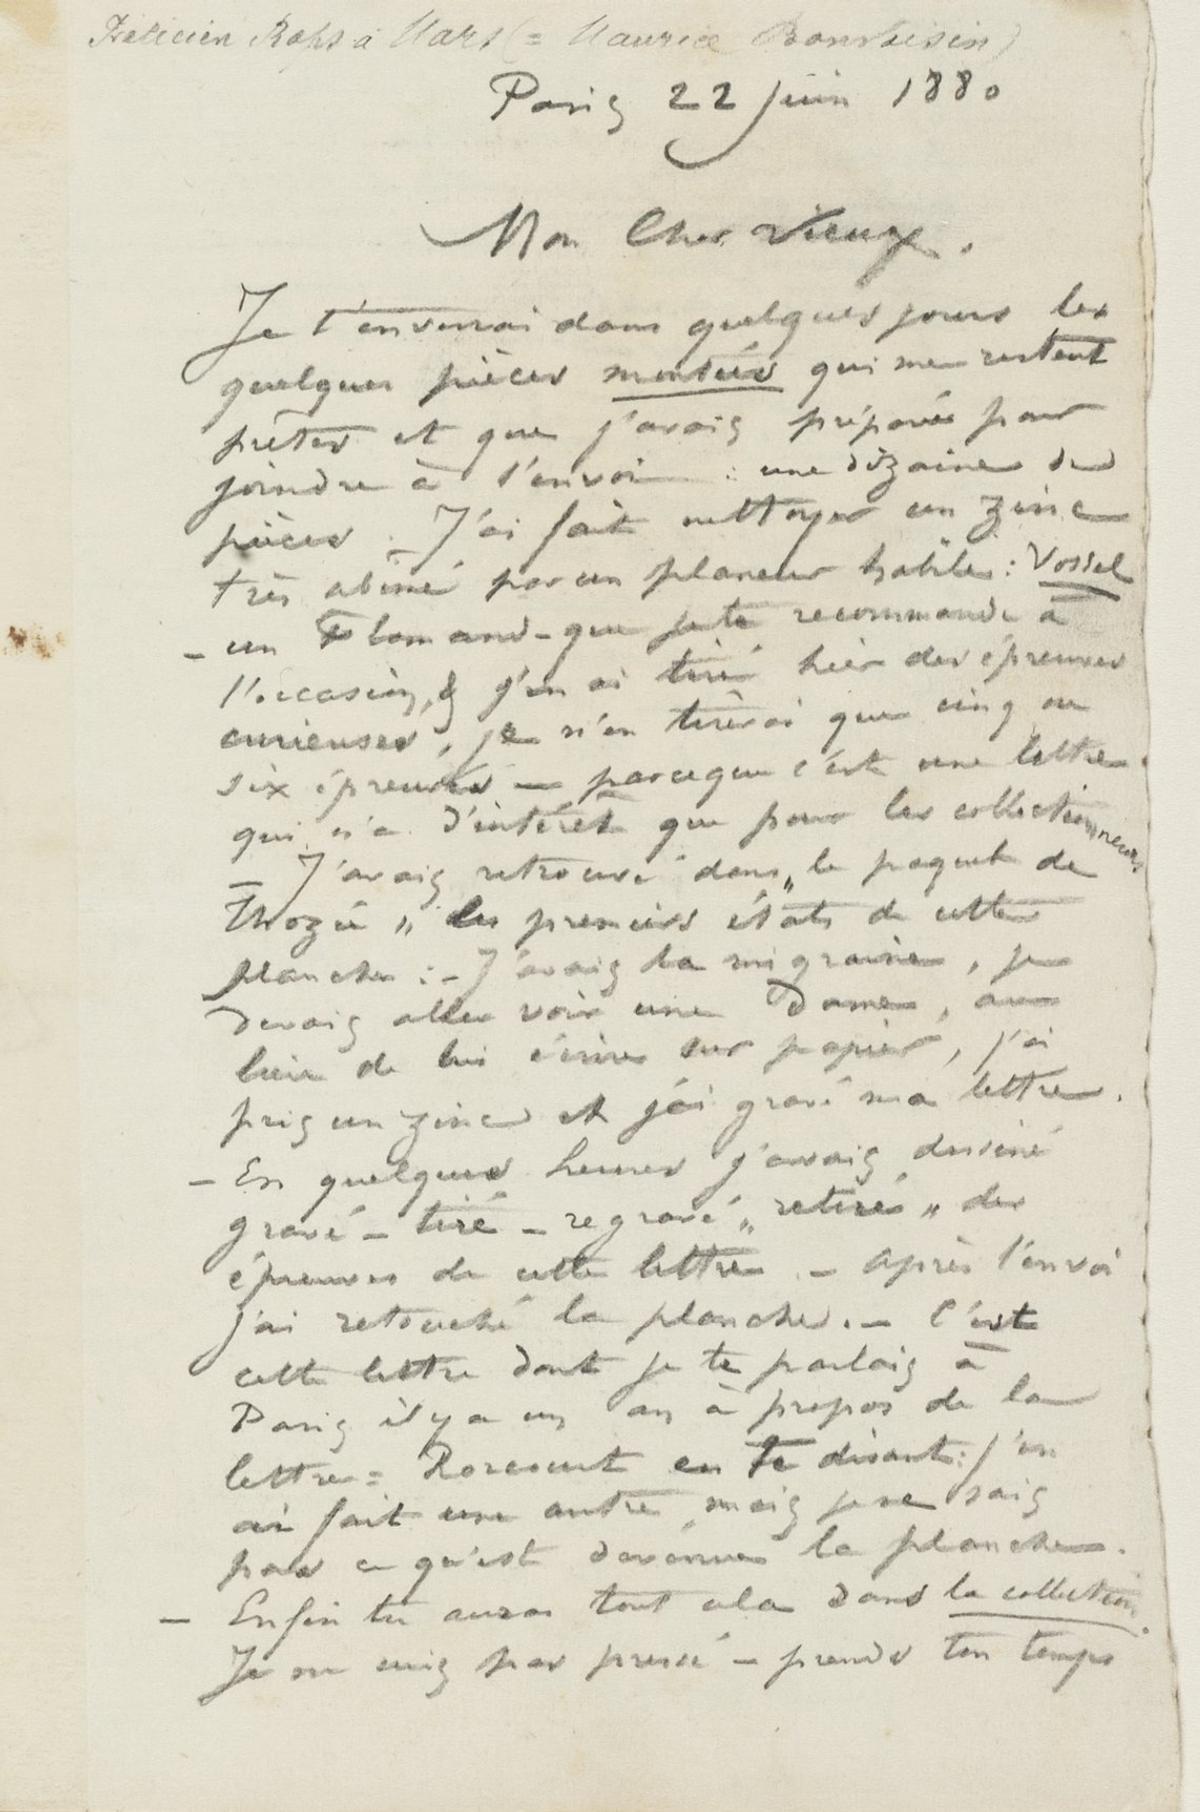 Félicien Rops à Mars (= Maurice Bonvoisin)
Paris 22 juin 1880
Mon Cher vieux.
Je t'enverrai dans quelques jours les
quelques pièces montées qui me restent
prêtes et que j'avais préparées pour
joindre à l'envoi : une dizaine de
pièces. J'ai fait nettoyer un zinc
très abîmé par un planeur habile : Vossel
– un Flamand – que je te recommande à
l'occasion, & j'en ai tiré hier des épreuves
curieuses, je n'en tirerai que cinq ou
six épreuves – parceque c'est une lettre
qui n'a d'intérêt que pour les collectionneurs
– J'avais retrouvé dans „ le paquet de
Thozée „ les premiers états de cette
planche : – J'avais la migraine, je
devais aller voir une Dame, au
lieu de lui écrire sur papier, j'ai
pris un zinc et j'ai gravé ma lettre.
– En quelques heures j'avais dessiné
gravé – tiré – regravé „ retiré „ des
épreuves de cette lettre – après l'envoi
j'ai retouché la planche. – C'est
cette lettre dont je te parlais à
Paris il y a un an à propos de la
lettre = en te disant : j'en
ai fait une autre mais je ne sais
pas ce qu'est devenue la planche.
– Enfin tu auras tout cela dans la collection.
Je ne suis pas pressé – prends ton temps